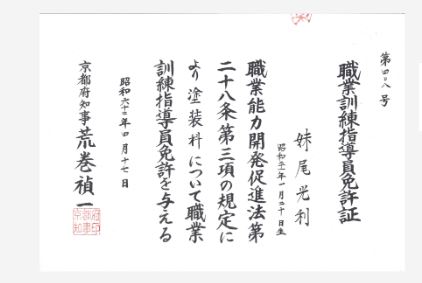 第四〇八号
職業訓練指導員免許証
妹尾光利
昭和三一年一月二十日生
職業能力開発促進法第
二十八条第三項の規定に
より塗装料について職業
訓練指導員免許を与える
昭和六十二年四月十七日
京都府知事荒巻禎一